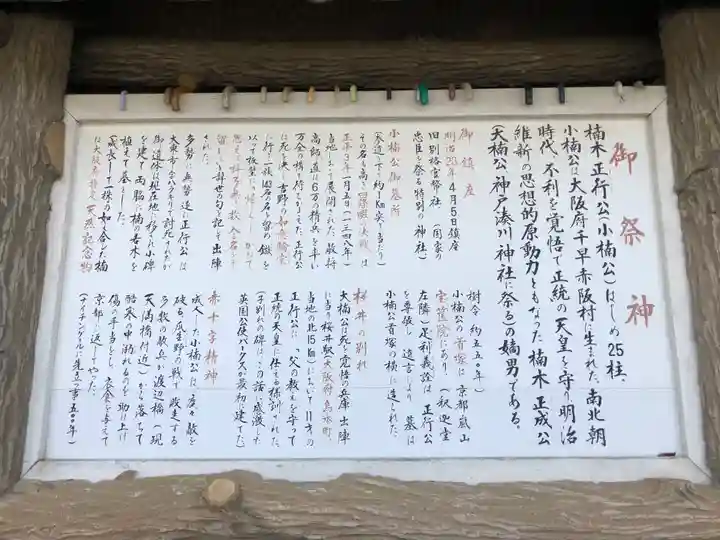 御祭神
楠木正行公(小楠公)はじめ25柱、
小楠公は大阪府千早赤阪村に生まれた、南北朝
時代、不利を覚悟で正統の天皇を守り明治
維新の思想的原動力ともなった楠木正成公
(大楠公、神戸湊川神社に祭る)の嫡男である。
御鎮座
明治23年4月5日鎮座
旧別格官幣社(国家の
忠臣を祭る特別の神社)
小楠公御墓所
(本道を下って約1km突き当たり)
その名も高き「四條畷の決戦」は
正平3年1月5日(一三四八年)
当地として展開された、敵将
高師直は6万の精兵を率い
万全の構え
に死を決し吉野の如意輪堂
に行き一族固めの名を留め鏃を
以って板壁に
留め辞世の句を記し出陣
された。
多勢に無勢遂に正行公は
大東市で討死されたが
御遺体は現在地に移され小碑
を建て両脇に楠の若木を
植えて墓とした。
(成長し一株の如く合した楠
は大阪府指定天然記念物
樹令約五五〇年)
小楠公の首塚は、京都嵐山
宝筐院にあり、(釈迦堂
左隣)足利義詮は正行公
を尊敬し遺言により墓は
小楠公首塚の横に造られた。
桜井の別れ
大楠公は死を覚悟の兵庫出陣
に当り桜井駅(大阪府島本町、
当地の北15km)において11才の
正行公に、「父の教えを守って
正統の天皇に仕える様」訓された。
(子別れの碑はこの話に感激した
英国公使パークスが最初に建てた)
赤十字精神
成人した小楠公は、度々敵を
破る、瓜生野の戦で敗走する
多数の敵兵が渡辺橋(現
天満橋付近)から落ちて
酷寒の中溺れるものを助け上げ
傷の手当をし、衣食を与えて
京都に返してやった。
(ナイチンゲールに先立つ事五〇〇年)